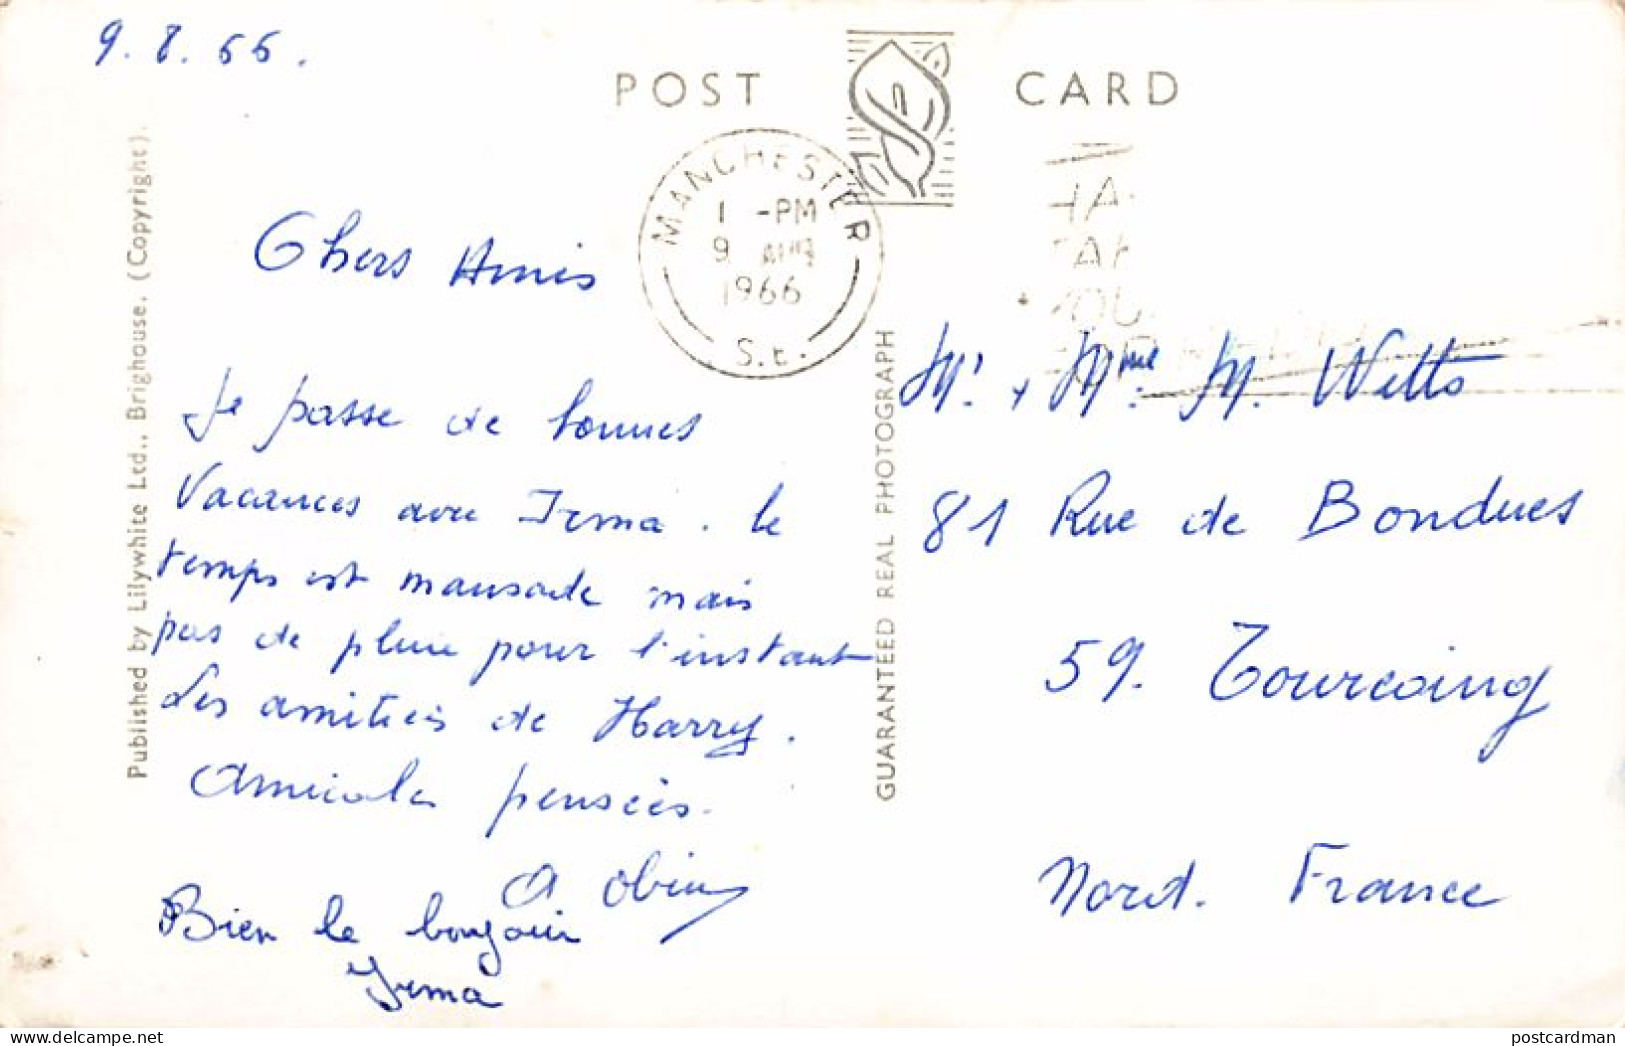 9.8.66.
POST CARD
MANCHESTER
1 -PM
9 AUG
1966
S.E.
Published by Lilywhite Ltd., Brighouse. (Copyright).
GUARANTEED REAL PHOTOGRAPH
Chers Amis
Je passe de bonnes
vacances avec Irma. le
temps est maussade mais
pas de pluie pour l'instant
Les amitiés de Harry.
Amicales pensées.
Bien le bonjour
Irma
Mr. + Mme. M. Witts
81 Rue de Bondues
59. Tourcoing
Nord. France
postcardman